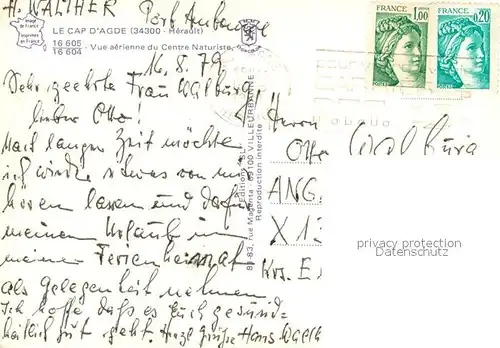 H. WALTHER Port Ambonne
LE CAP D'AGDE (34300 - Hérault)
16 605
16 604 - Vue aérienne du Centre Naturiste
16. 8. 79
Sehr geehrte Frau Walburg,
lieber Otto!
Nach langer Zeit möchte
ich wieder etwas von mir
hören lassen und dafür
meinen Urlaub in
meiner Ferienheimat
als Gelegenheit nehmen.
Ich hoffe daß es Euch gesund-
heitlich gut geht. Herzl. Grüße Hans Walth
83, rue Magenta - 69100 VILLEURBANNE
Reproduction interdite
FRANCE 1,00
FRANCE 0,20
Herrn
ANG
X 13
Krs. E
privacy protection
Datenschutz